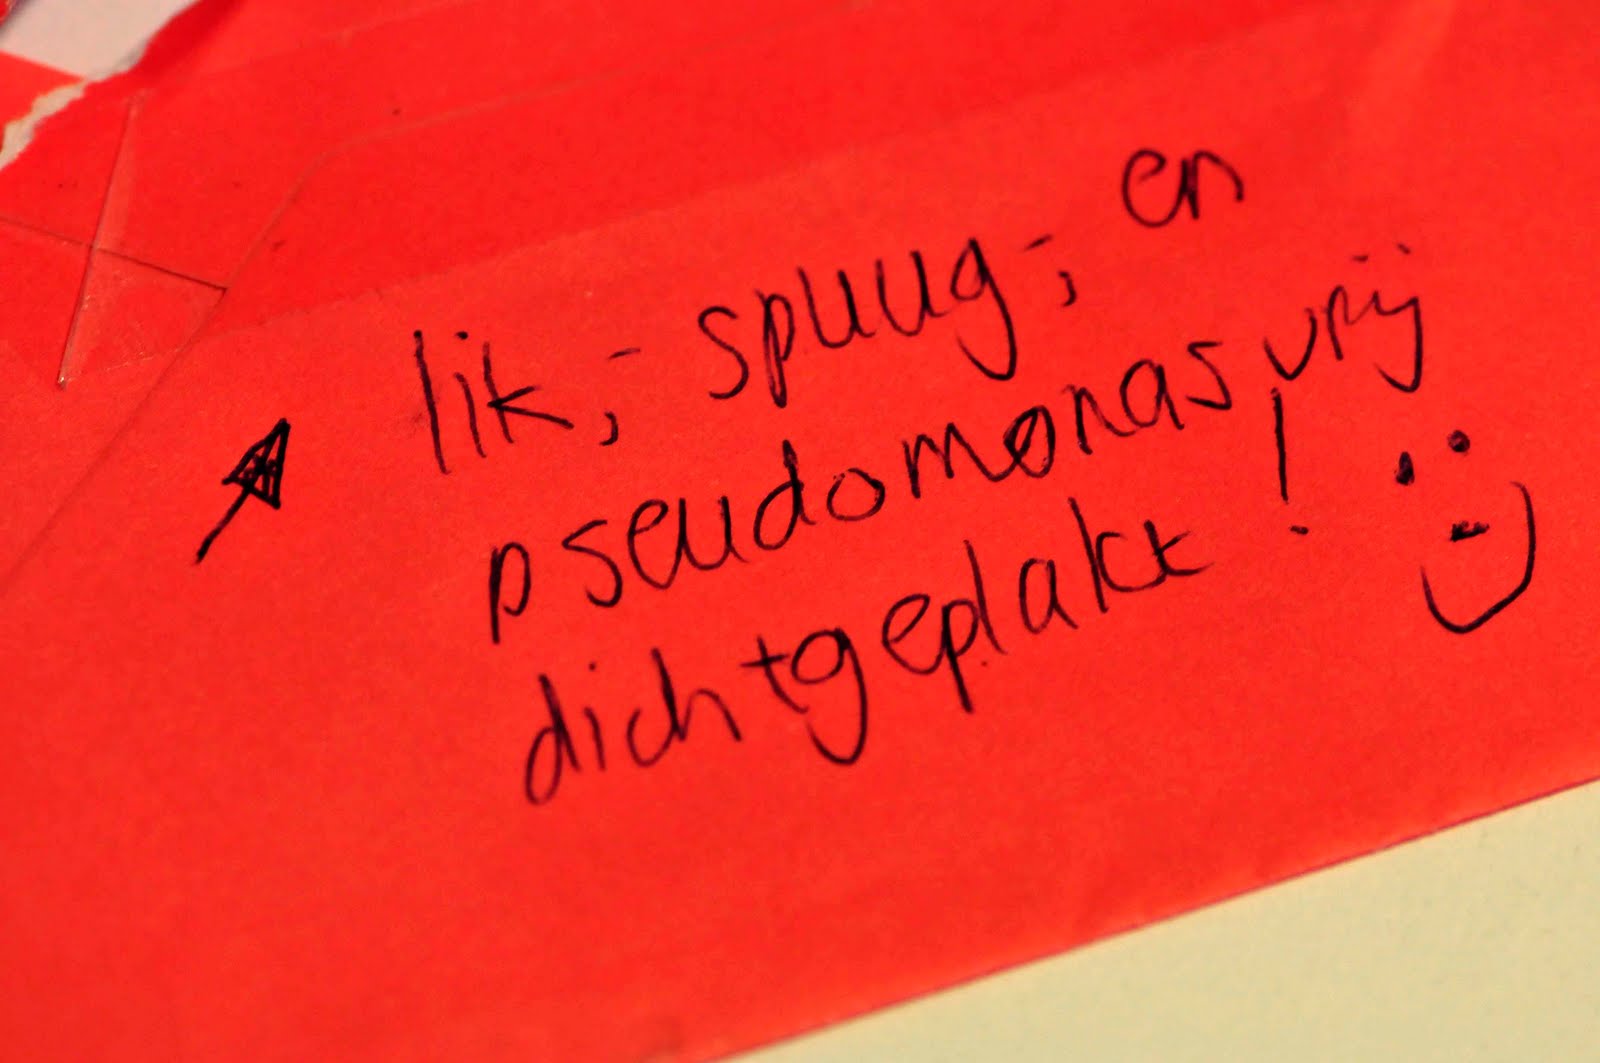 lik,- spuug-, en
pseudomonas vrij
dichtgeplakt!